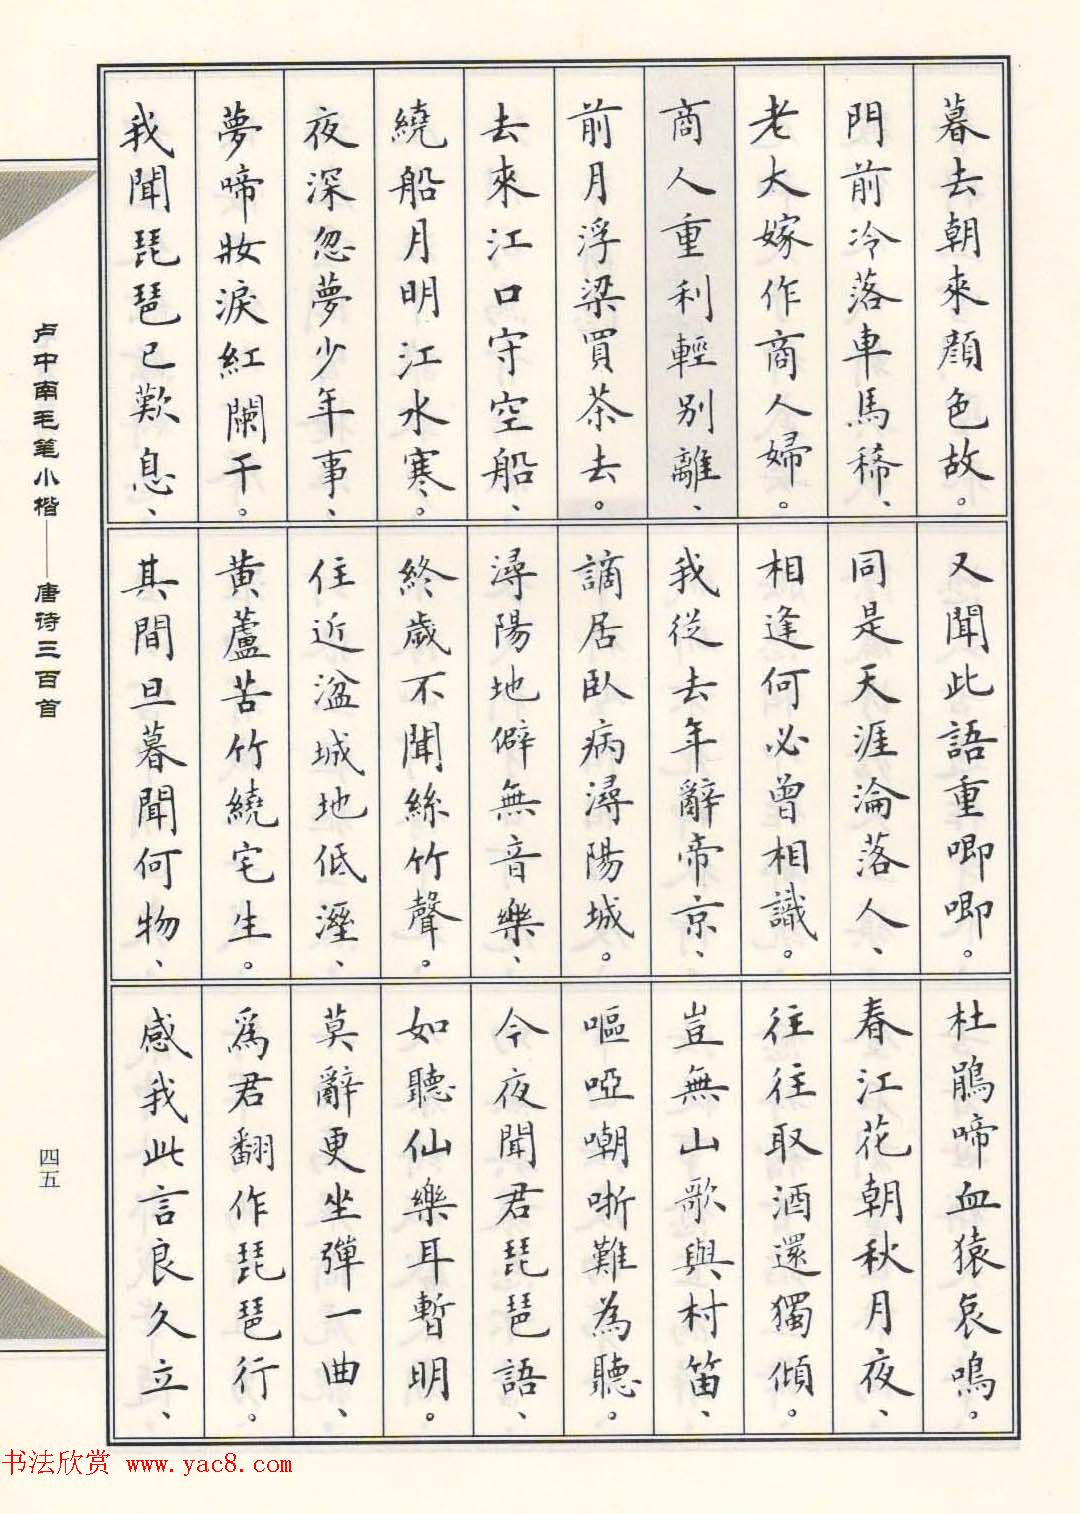 暮去朝來顔色故。
門前冷落車馬稀、
老大嫁作商人婦。
商人重利輕別離、
前月浮梁買茶去。
去來江口守空船、
繞船月明江水寒。
夜深忽夢少年事、
夢啼妝淚紅闌干。
我聞琵琶已歎息、
又聞此語重唧唧。
同是天涯淪落人、
相逢何必曾相識。
我從去年辭帝京、
謫居臥病潯陽城。
潯陽地僻無音樂、
終歲不聞絲竹聲。
住近湓城地低溼、
黄蘆苦竹繞宅生。
其間旦暮聞何物、
杜鵑啼血猿哀鳴。
春江花朝秋月夜、
往往取酒還獨傾。
豈無山歌與村笛、
嘔啞嘲哳難為聽。
今夜聞君琵琶語、
如聽仙樂耳暫明。
莫辭更坐彈一曲、
爲君翻作琵琶行。
感我此言良久立、
卢中南毛笔小楷——唐诗三百首
四五
书法欣赏 www.yac8.com